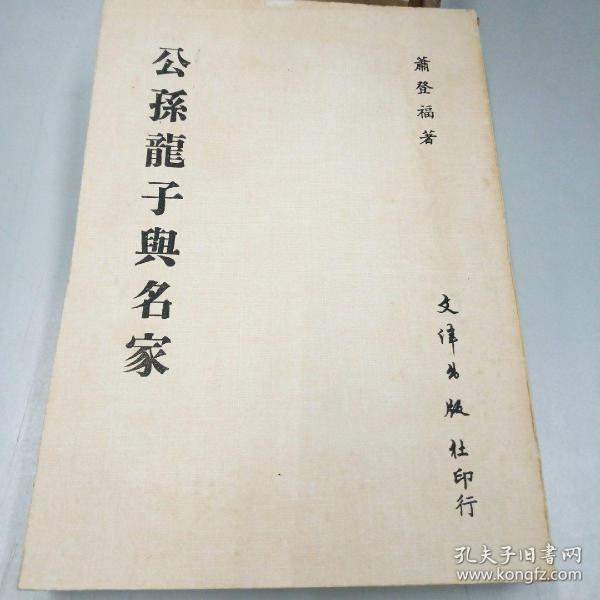 公孫龍子與名家
蕭登福著
文津出版社印行
孔夫子旧書网
www.kongfz.com